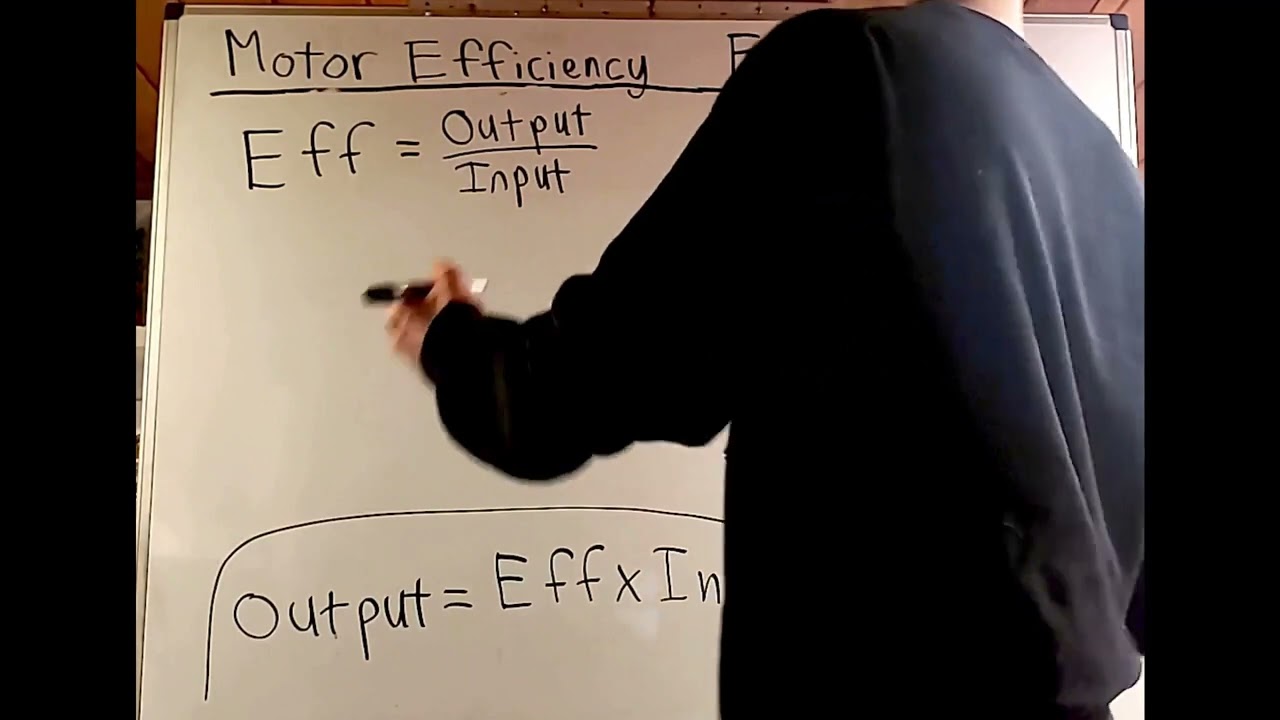 Motor Efficiency
Eff = Output
Input
Output = Eff x In